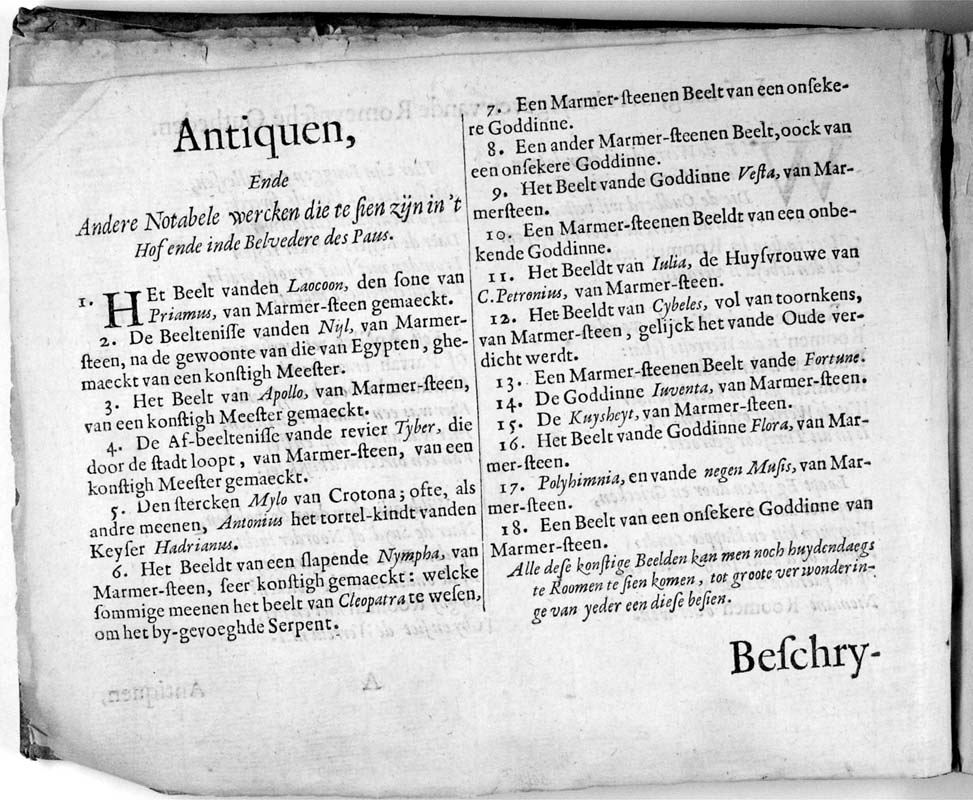 Antiquen,
Ende
Andere Notabele wercken die te sien zijn in 't
Hof ende inde Belvedere des Paus.
1. HEt Beelt vanden Laocoon, den sone van
Priamus, van Marmer-steen gemaeckt.
2. De Beeltenisse vanden Nijl, van Marmer-
steen, na de gewoonte van die van Egypten, ghe-
maeckt van een konstigh Meester.
3. Het Beelt van Apollo, van Marmer-steen,
van een konstigh Meester gemaeckt.
4. De Af-beeltenisse vande revier Tyber, die
door de stadt loopt, van Marmer-steen, van een
konstigh Meester gemaeckt.
5. Den stercken Mylo van Crotona; ofte, als
andre meenen, Antonius het tortel-kindt vanden
Keyser Hadrianus.
6. Het Beeldt van een slapende Nympha, van
Marmer-steen, seer konstigh gemaeckt: welcke
sommige meenen het beelt van Cleopatra te wesen,
om het by-gevoeghde Serpent.
7. Een Marmer-steenen Beelt van een onseke-
re Goddinne.
8. Een ander Marmer-steenen Beelt, oock van
een onsekere Goddinne.
9. Het Beelt vande Goddinne Vesta, van Mar-
mersteen.
10. Een Marmer-steenen Beeldt van een onbe-
kende Goddinne.
11. Het Beeldt van Iulia, de Huysvrouwe van
C. Petronius, van Marmer-steen.
12. Het Beeldt van Cybeles, vol van toornkens,
van Marmer-steen, gelijck het vande Oude ver-
dicht werdt.
13. Een Marmer-steenen Beelt vande Fortune.
14. De Goddinne Iuventa, van Marmer-steen.
15. De Kuysheyt, van Marmer-steen.
16. Het Beelt vande Goddinne Flora, van Mar-
mer-steen.
17. Polyhimnia, en vande negen Musis, van Mar-
mer-steen.
18. Een Beelt van een onsekere Goddinne van
Marmer-steen.
Alle dese konstige Beelden kan men noch huydendaegs
te Roomen te sien komen, tot groote verwonderin-
ge van yeder een diese besien.
Beschry-